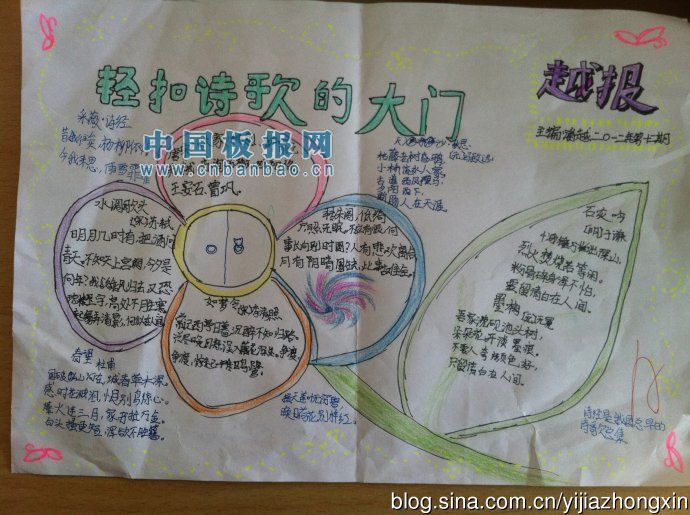 轻扣诗歌的大门
越报
主编:潘越 二〇一二年第七期
中国板报网
www.cnbanbao.cn
采薇·诗经
昔我往矣,杨柳依依
今我来思,雨雪霏霏
王安石、曾巩。
天净沙·秋思
枯藤老树昏鸦
小桥流水人家
古道西风瘦马
夕阳西下
断肠人在天涯
水调歌头
明月几时有,把酒问
青天。不知天上宫阙,今夕是
何年?我欲乘风归去,又恐
转朱阁,低绮
户,照无眠。不应有恨,何
事长向别时圆?人有悲欢离合,
月有阴晴圆缺,此事古难全。
如梦令 宋·李清照
常记西亭日暮,沉醉不知归路。
春望 杜甫
国破山河在,城春草木深。
感时花溅泪,恨别鸟惊心。
烽火连三月,家书抵万金。
白头搔更短,浑欲不胜簪。
接天莲叶无穷碧
映日荷花别样红。
石灰吟
明·于谦
千锤万凿出深山,
烈火焚烧若等闲。
粉骨碎身浑不怕,
要留清白在人间。
墨梅 元·王冕
吾家洗砚池头树,
朵朵花开淡墨痕。
不要人夸颜色好,
只留清白在人间。
诗经是我国最早的
诗歌总集
blog.sina.com.cn/yijiazhongxin